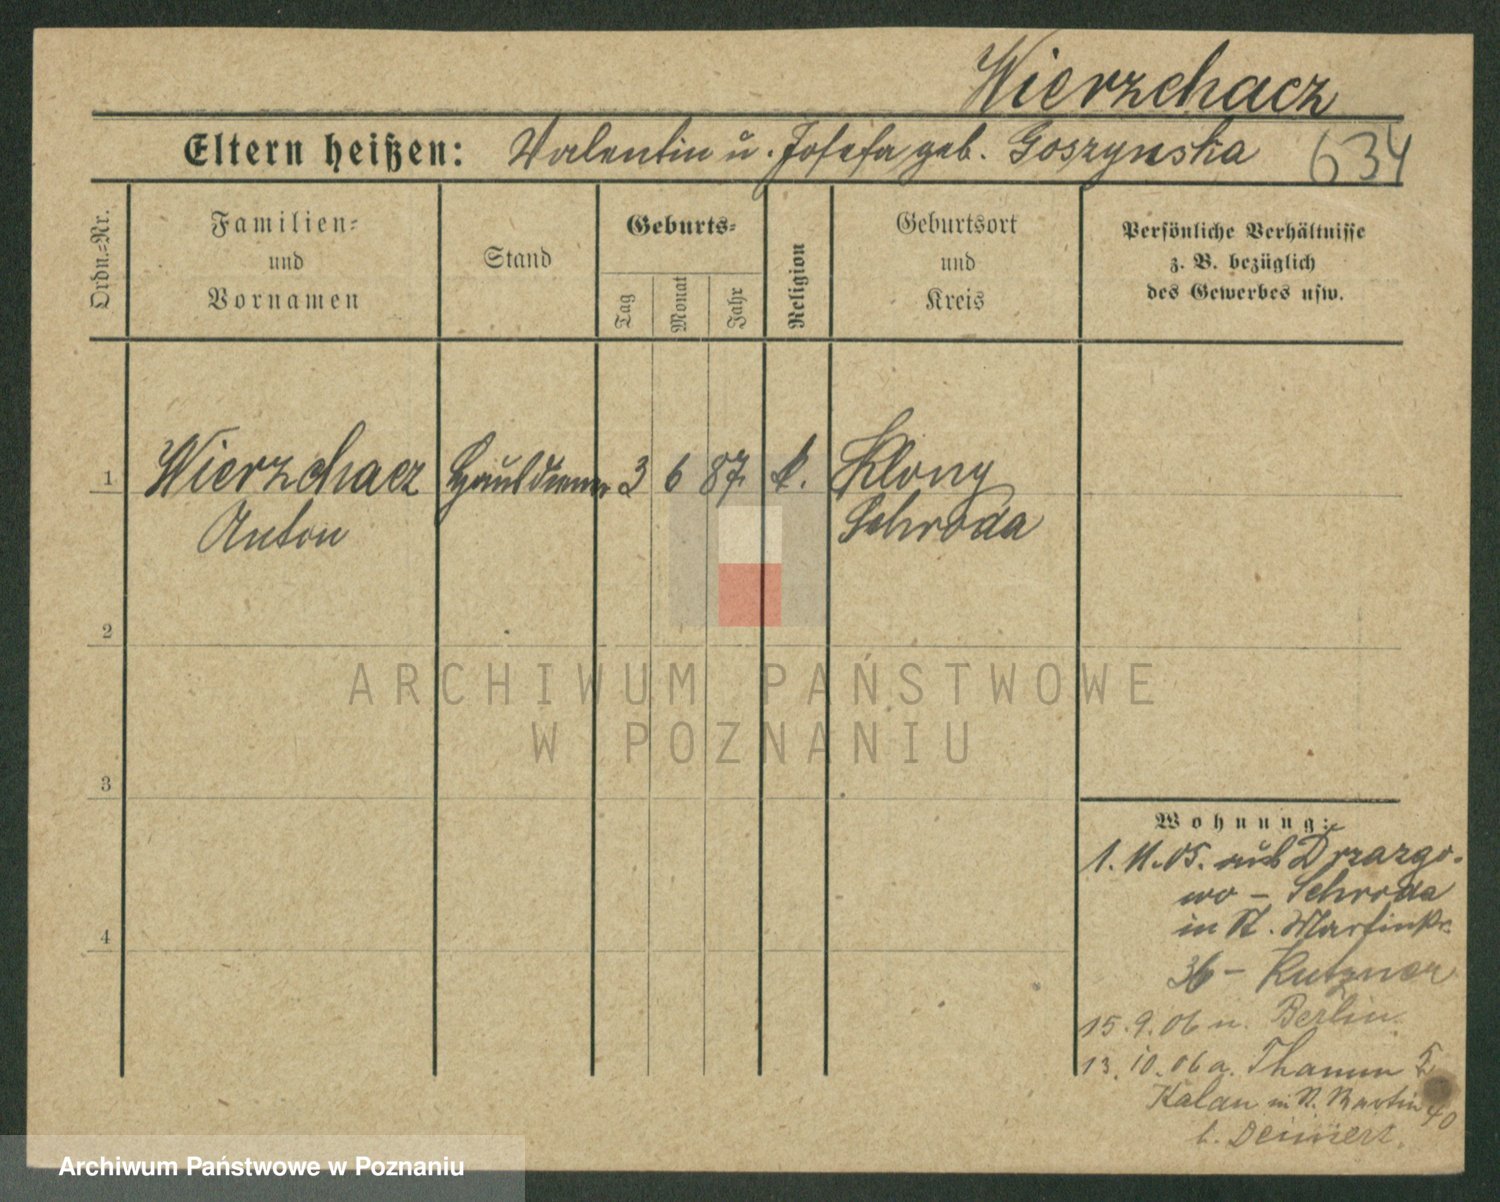 Wierzchacz
Eltern heißen: Valentin u. Josefa geb. Goszynska 634
Ordn.-Nr.
Familien- und Vornamen
Stand
Geburts-
Tag
Monat
Jahr
Religion
Geburtsort und Kreis
Persönliche Verhältnisse
z. B. bezüglich
des Gewerbes usw.
1 Wierzchacz Hausdiener 3 6 87. k. Klony
Anton Schroda
2
ARCHIWUM PAŃSTWOWE
W POZNANIU
3
4
Wohnung:
1. 11. 05. aus Drzazgo-
wo – Schroda
in St. Martinstr.
36 – Kutzner
15. 9. 06 n. Berlin.
13. 10. 06 a. Thamm
Kalau in St. Martin 40
b. Deinert.
Archiwum Państwowe w Poznaniu